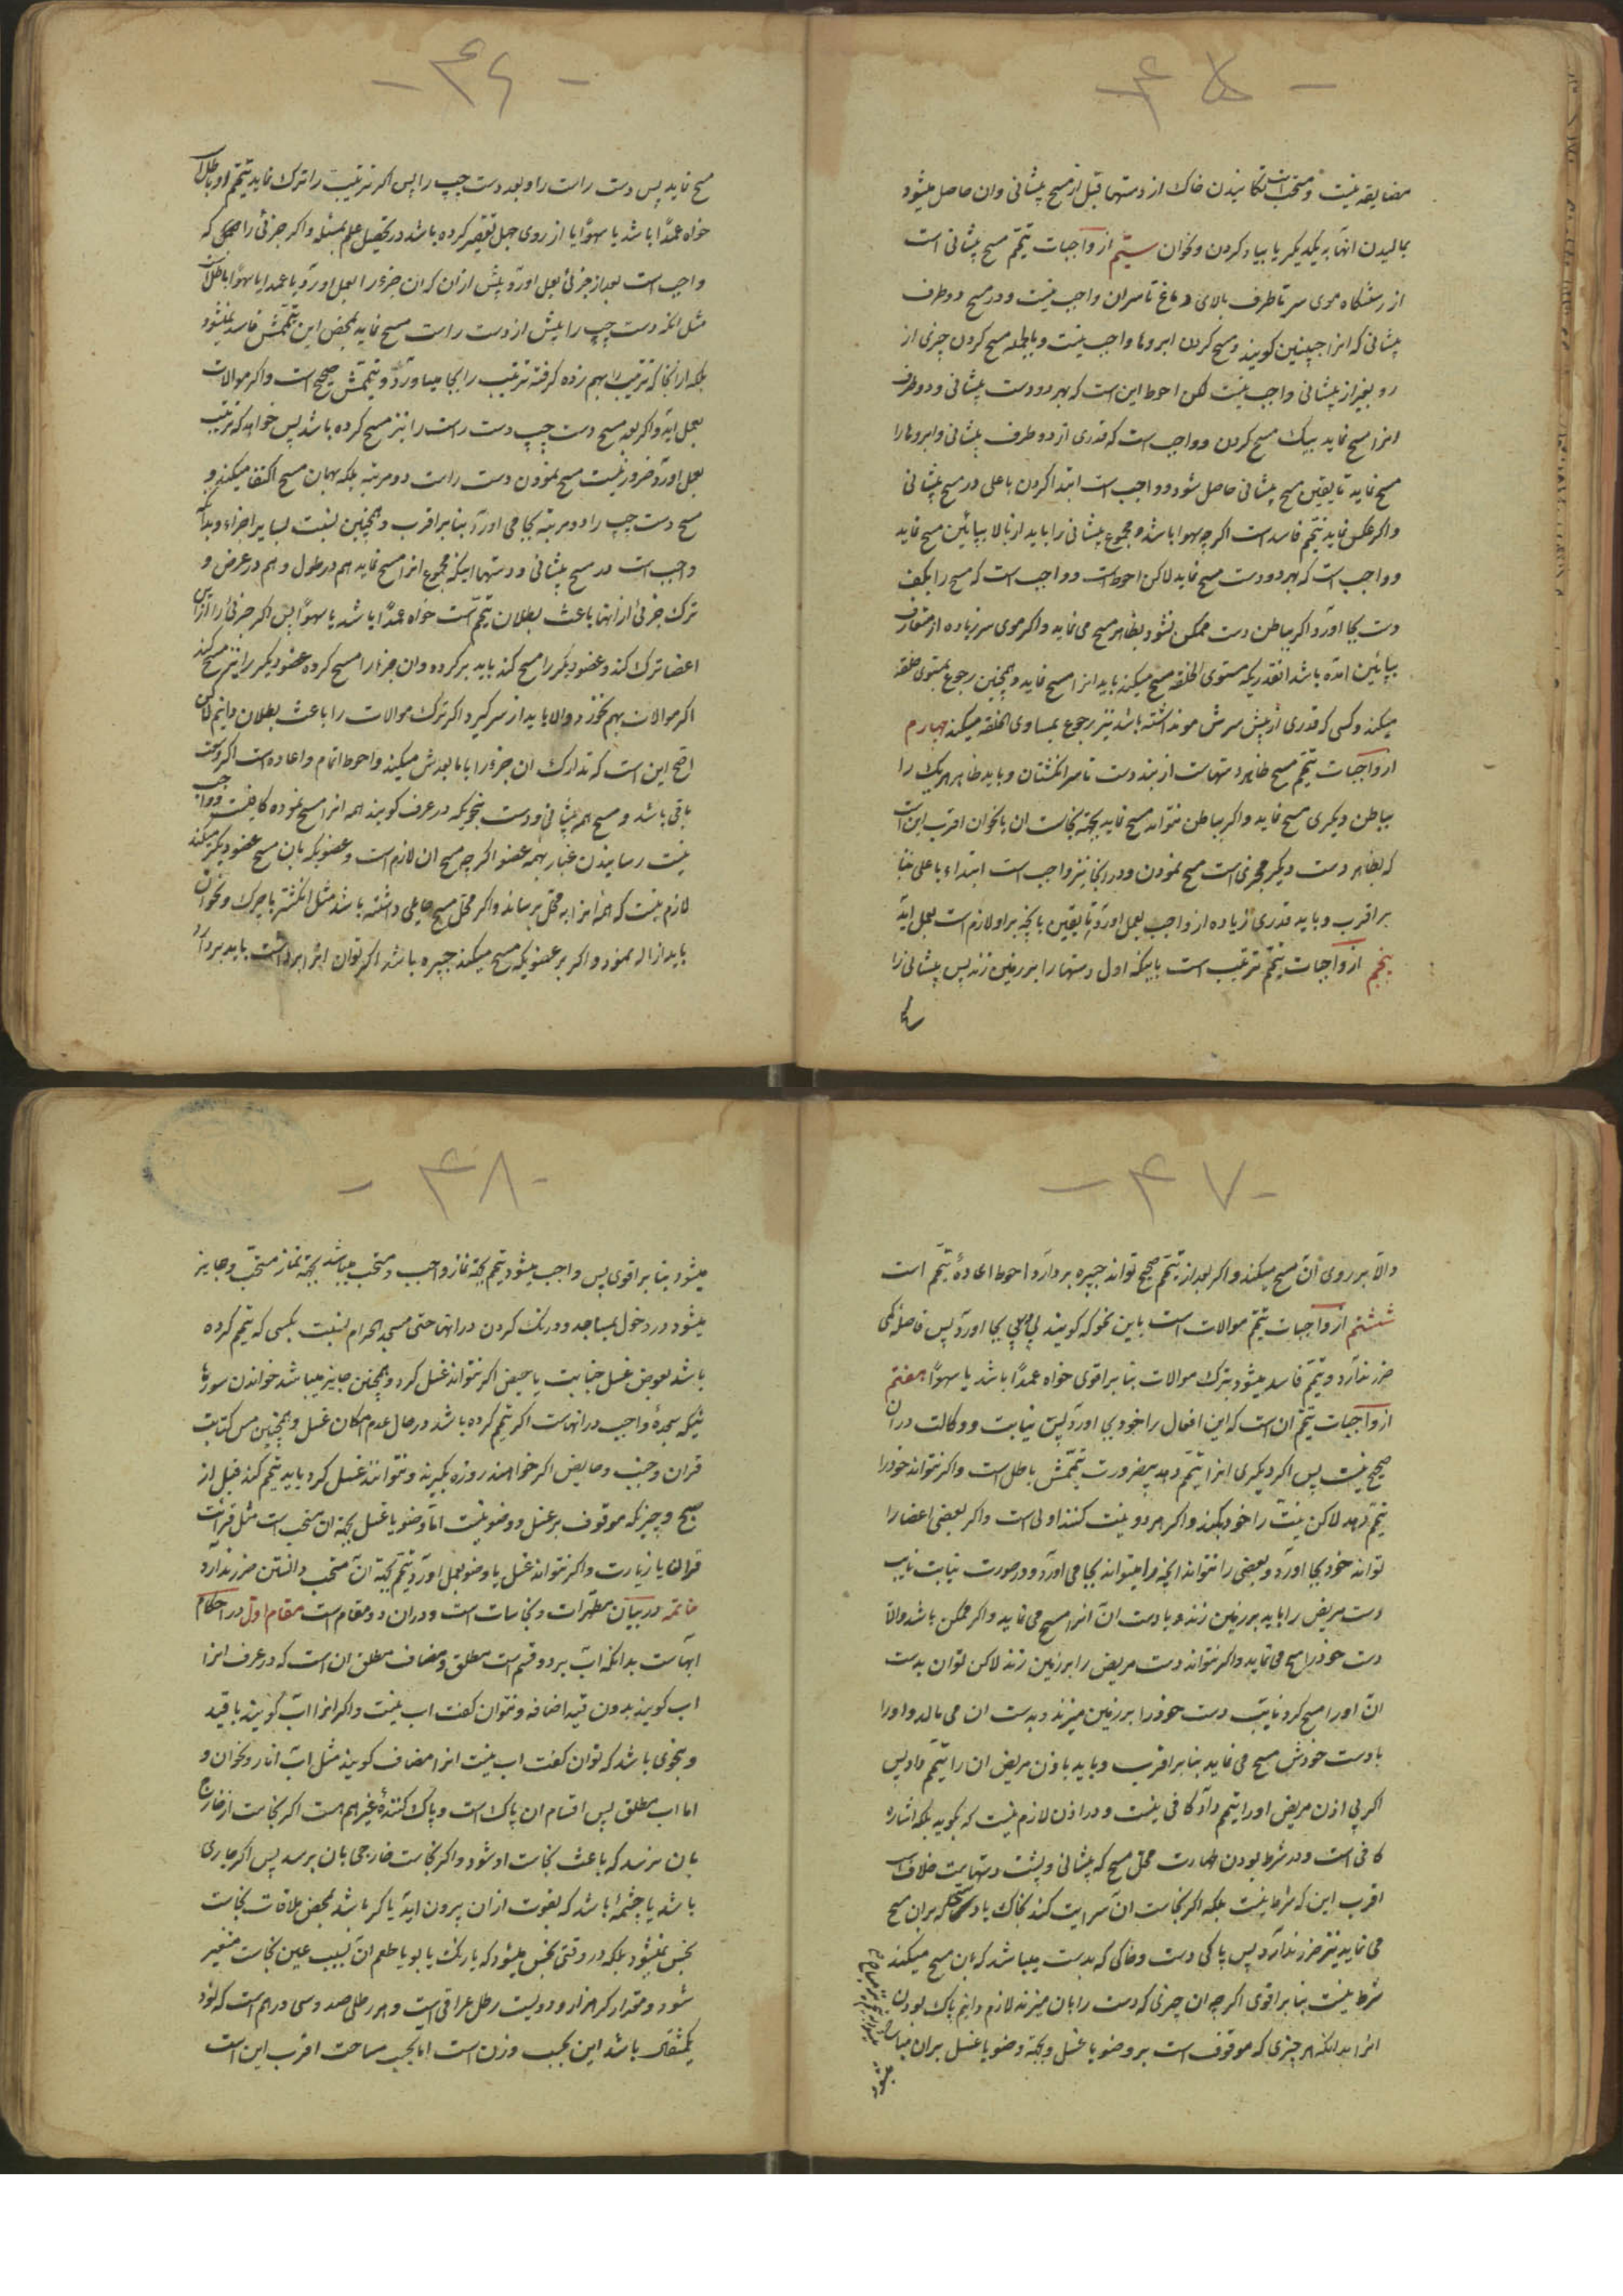 - ۴۵ -
مضایقه نیست و مستحب است تکانیدن خاک از دستها قبل از مسح پیشانی وان حاصل میشود
بمالیدن انها به یکدیگر یا بباد کردن و نحوان سیّم از واجبات تیمّم مسح پیشانی است
از رستنگاه موی سر تا طرف بالای دماغ تا سران واجب نیست و در مسح دو طرف
پیشانی که انرا جبینین کویند و مسح کردن ابروها واجب نیست و بالجمله مسح کردن چیزی از
رو بغیر از پیشانی واجب نیست لکن احوط این است که بهر دو دست پیشانی و دو طرف
انرا مسح نماید بیک مسح کردن و واجب است که قدری از دو طرف پیشانی و ابروها را
مسح نماید تا یقین مسح پیشانی حاصل شود و واجب است ابتدا کردن باعلی در مسح پیشانی
و اکر عکس نماید تیمّم فاسد است اکر چه سهوا باشد و مجموع پیشانی را باید از بالا بپائین مسح نماید
و واجب است که بهر دو دست مسح نماید لاکن احوط است و واجب است که مسح را بکف
دست بجا اورد و اکر بباطن دست ممکن نشود بظاهر مسح می نماید و اکر موی سر زیاده از متعارف
بپائین امده باشد انقدریکه مستوی الخلقه مسح میکند باید انرا مسح نماید و همچنین رجوع بمستوی خلقه
میکند و کسی که قدری از پیش سرش مو نداشته باشد نیز رجوع بمساوی الخلقه میکند چهارم
از واجبات تیمّم مسح ظاهر دستهاست از بند دست تا سر انکشتان و باید ظاهر هر یک را
بباطن دیکری مسح نماید و اکر بباطن نتواند مسح نماید بجهة نجاست ان یا نحوان اقرب این است
که بظاهر دست دیکر مجزی است مسح نمودن و در اینجا نیز واجب است ابتداء باعلی بنا
بر اقرب و باید قدری زیاده از واجب بعمل اورد تا یقین بانچه بر او لازم است بعمل اید
پنجم از واجبات تیمّم ترتیب است باینکه اول دستها را بر زمین زند پس پیشانی را
- ۴۶ -
مسح نماید پس دست راست را و بعد دست چپ را پس اکر ترتیب را ترک نماید تیمّم او باطل است
خواه عمداً باشد یا سهواً یا از روی جهل تقصیر کرده باشد در تحصیل علم بمسئله و اکر جزئی را که
واجب است بعد از جزئی بعمل اورد پیش از ان که ان جزء را بعمل اورد یا عمدا یا سهواً باطل است
مثل انکه دست چپ را پیش از دست راست مسح نماید بمحض این تیمّمش فاسد نمیشود
بلکه از انجا که ترتیب را بهم زده کرفته ترتیب را بجا میاورد و تیمّمش صحیح است و اکر موالات
بعمل اید و اکر بعد مسح دست چپ دست راست را نیز مسح کرده باشد پس خواهد که ترتیب
بعمل اورد ضرور نیست مسح نمودن دست راست دو مرتبه بلکه بهمان مسح اکتفا میکند و
مسح دست چپ را دو مرتبه بجا می اورد بنا بر اقرب و همچنین نسبت بسایر اجزاء و بدانکه
واجب است در مسح پیشانی و دستها اینکه مجموع انرا مسح نماید هم در طول و هم در عرض و
ترک جزئی از انها باعث بطلان تیمّم است خواه عمداً باشد یا سهواً پس اکر جزئی را از این
اعضا ترک کند و عضو دیکر را مسح کند باید بر کرده و ان جزء را مسح کرده عضو دیکر را نیز مسح کند
اکر موالات بهم نخورد و الا باید از سر کیرد اکر ترک موالات را باعث بطلان دانیم لکن
اصح این است که تدارک ان جزء را با ما بعدش میکند و احوط اتمام و اعاده است اکر وقت
باقی باشد و مسح همه پیشانی و دست بنحویکه در عرف کویند همه انرا مسح نموده کافیست و واجب
نیست رسانیدن غبار بهمه عضو اکر چه مسح ان لازم است و عضویکه بان مسح عضو دیکر میکند
لازم نیست که همه انرا به محل برساند و اکر محل مسح حایلی داشته باشد مثل انکشتر یا چرک و نحوان
باید ازاله نمود و اکر بر عضویکه مسح میکند جبیره باشد اکر توان انرا برداشت باید بردارد
- ۴۷ -
و الّا بر روی ان مسح میکند و اکر بعد از تیمّم صحیح تواند جبیره بردارد احوط اعادهٔ تیمّم است
ششم از واجبات تیمّم موالات است باین نحو که کویند پی در پی بجا اورد پس فاصله کمی
ضرر ندارد و تیمّم فاسد میشود بترک موالات بنا بر اقوی خواه عمداً باشد یا سهواً هفتم
از واجبات تیمّم ان است که این افعال را خود بجا اورد پس نیابت و وکالت در ان
صحیح نیست پس اکر دیکری انرا تیمّم دهد بیضرورت تیمّمش باطل است و اکر نتواند خود را
تیمّم دهد لاکن نیت را خود بکند و اکر هر دو نیت کنند اولی است و اکر بعضی اعضا را
تواند خود بجا اورد و بعضی را نتواند انچه را میتواند بجا می اورد و در صورت نیابت نایب
دست مریض را باید بر زمین زند و با دست ان انرا مسح می نماید و اکر ممکن باشد و الّا
دست خود را مسح می نماید و اکر نتواند دست مریض را بر زمین زند لاکن توان بدست
ان او را مسح کرد نایب دست خود را بر زمین میزند و بدست ان می مالد و او را
با دست خودش مسح می نماید بنا بر اقرب و باید باذن مریض ان را تیمّم داد پس
اکر بی اذن مریض او را تیمّم داد کافی نیست و در اذن لازم نیست که بکوید بلکه اشاره
کافی است و در شرط بودن طهارت محل مسح که پیشانی و پشت دستهاست خلاف است
اقرب این که شرط نیست بلکه اکر نجاست ان سرایت کند بخاک یا دستی که بران مسح
می نماید نیز ضرر ندارد پس پاکی دست و خاکی که بدست میباشد که بان مسح میکند
شرط نیست بنا بر اقوی اکر چه ان چیزی که دست را بان میزند لازم دانیم پاک بودن
انرا بدانکه هر چیزی که موقوف است بر وضو یا غسل و بجهة وضو یا غسل بران مباح
میشود
- ۴۸ -
میشود بنا بر اقوی پس واجب میشود تیمّم بجهة نماز واجب و مستحب میباشد بجهة نماز مستحب و جایز
میشود در دخول بمساجد و درنک کردن در انها حتی مسجد الحرام نسبت بکسی که تیمّم کرده
باشد بعوض غسل جنابت یا حیض اکر نتواند غسل کرد و همچنین جایز میباشد خواندن سورهٔ
نیکه سجدهٔ واجب در انهاست اکر تیمّم کرده باشد در حال عدم امکان غسل و همچنین مس کتابت
قران و جنب و حایض اکر خواهند روزه بکیرند و نتوانند غسل کرد باید تیمّم کنند قبل از
صبح و چیزیکه موقوف بر غسل و وضو نیست امّا وضو یا غسل بجهة ان مستحب است مثل قرائت
قران یا زیارت و اکر نتواند غسل یا وضو بعمل اورد تیمّم بجهة ان مستحب دانستن ضرر ندارد
خاتمه در بیان مطهّرات و نجاسات است و در ان دو مقام است مقام اوّل در احکام
ابهاست بدانکه اب بر دو قسم است مطلق و مضاف مطلق ان است که در عرف انرا
اب کویند بدون قید اضافه و نتوان کفت اب نیست و اکر انرا اب کویند با قید
و بنحوی باشد که توان کفت اب نیست انرا مضاف کویند مثل اب انار و نحوان و
اما اب مطلق پس اقسام ان پاک است و پاک کنندهٔ غیر هم هست اکر نجاست از خارج
بان نرسد که باعث نجاست او شود و اکر نجاست خارجی بان برسد پس اکر جاری
باشد یا چشمهٔ باشد که بقوت از ان بیرون اید یا کر باشد بمحض ملاقات نجاست
نجس نمیشود بلکه در وقتی نجس میشود که یا رنک یا بو یا طعم ان بسبب عین نجاست متغیر
شود و مقدار کر هزار و دویست رطل عراقی است و هر رطلی صد و سی درهم است که نود
یکمثقال باشد این بحسب وزن است اما بحسب مساحت اقرب این است